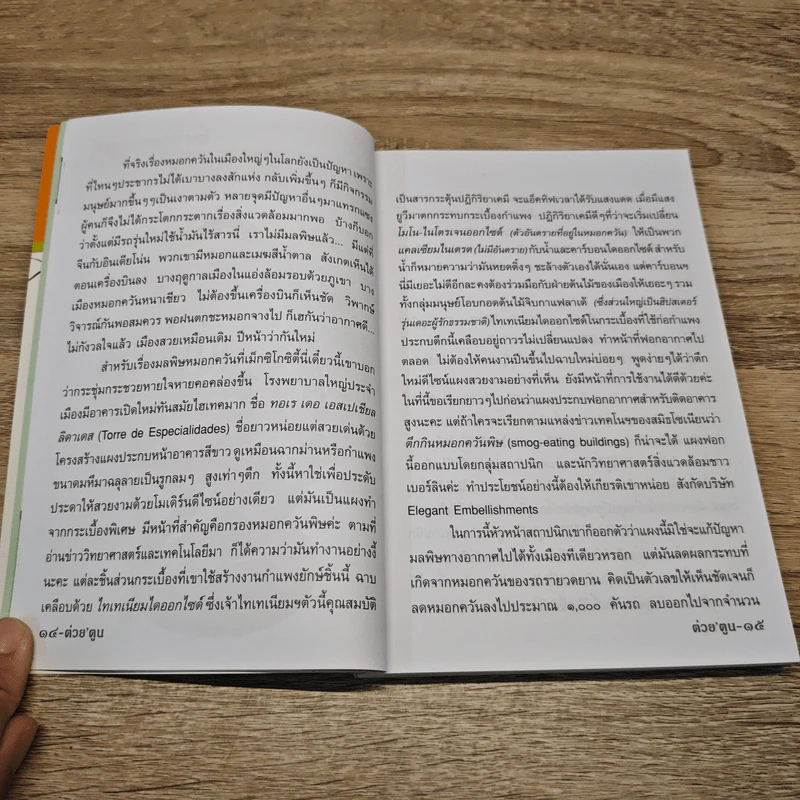 ที่จริงเรื่องหมอกควันในเมืองใหญ่ๆในโลกยังเป็นปัญหา เพราะ
ที่ไหนๆประชากรไม่ได้เบาบางลงสักแห่ง กลับเพิ่มขึ้นๆ ก็มีกิจกรรม
มนุษย์มากขึ้นๆๆเป็นเงาตามตัว หลายจุดมีปัญหาอื่นๆมาแทรกแซง
ผู้คนก็จึงไม่ได้กระโตกกระตากเรื่องสิ่งแวดล้อมมากพอ บ้างก็บอก
ว่าตั้งแต่มีรถรุ่นใหม่ใช้น้ำมันไร้สารนี่ เราไม่มีมลพิษแล้ว... มีแต่ที่
จีนกับอินเดียโน่น พวกเขามีหมอกและเมฆสีน้ำตาล สังเกตเห็นได้
ตอนเครื่องบินลง บางฤดูกาลเมืองในแอ่งล้อมรอบด้วยภูเขา บาง
เมืองหมอกควันหนาเชียว ไม่ต้องขึ้นเครื่องบินก็เห็นชัด วิพากษ์
วิจารณ์กันพอสมควร พอฝนตกชะหมอกจางไป ก็เฮกันว่าอากาศดี...
ไม่กังวลใจแล้ว เมืองสวยเหมือนเดิม ปีหน้าว่ากันใหม่
สำหรับเรื่องมลพิษหมอกควันที่เม็กซิโกซิตี้นี่เดี๋ยวนี้เขาบอก
ว่ากระชุ่มกระชวยหายใจหายคอคล่องขึ้น โรงพยาบาลใหญ่ประจำ
เมืองมีอาคารเปิดใหม่ทันสมัยไฮเทคมาก ชื่อ ทอเร เดอ เอสเปเชียล
ลิดาเดส (Torre de Especialidades) ชื่อยาวหน่อยแต่สวยเด่นด้วย
โครงสร้างแผงประกบหน้าอาคารสีขาว ดูเหมือนฉากม่านหรือกำแพง
ขนาดมหึมาฉลุลายเป็นรูกลมๆ สูงเท่าๆตึก ทั้งนี้หาใช่เพื่อประดับ
ประดาให้สวยงามด้วยโมเดิร์นดีไซน์อย่างเดียว แต่มันเป็นแผงทำ
จากกระเบื้องพิเศษ มีหน้าที่สำคัญคือกรองหมอกควันพิษค่ะ ตามที่
อ่านข่าววิทยาศาสตร์และเทคโนโลยีมา ก็ได้ความว่ามันทำงานอย่างงี้
นะคะ แต่ละชิ้นส่วนกระเบื้องที่เขาใช้สร้างงานกำแพงยักษ์ชิ้นนี้ ฉาบ
เคลือบด้วย ไทเทเนียมไดออกไซด์ ซึ่งเจ้าไทเทเนียมฯตัวนี้คุณสมบัติ
๑๔-ต่วย'ตูน
เป็นสารกระตุ้นปฏิกิริยาเคมี จะแอ็คทิฟเวลาได้รับแสงแดด เมื่อมีแสง
ยูวีมาตกกระทบกระเบื้องกำแพง ปฏิกิริยาเคมีดีๆที่ว่าจะเริ่มเปลี่ยน
โมโน-ไนโตรเจนออกไซด์ (ตัวอันตรายที่อยู่ในหมอกควัน) ให้เป็นพวก
แคลเซียมไนเตรต (ไม่มีอันตราย) กับน้ำและคาร์บอนไดออกไซด์ สำหรับ
น้ำก็หมายความว่ามันหยดติ๋งๆ ชะล้างตัวเองได้นั่นเอง แต่คาร์บอนฯ
นี่มีเยอะไม่ดีอีกละคงต้องร่วมมือกับฝ่ายต้นไม้มีให้เยอะๆ รวม
ทั้งกลุ่มมนุษย์โอบกอดต้นไม้จิบกาแฟลาเต้ (ซึ่งส่วนใหญ่เป็นฮิปสเตอร์
รุ่นเดอะผู้รักธรรมชาติ) ไทเทเนียมไดออกไซด์ในกระเบื้องที่ใช้ก่อกำแพง
ประกบตึกนี้เคลือบอยู่ถาวรไม่เปลี่ยนแปลง ทำหน้าที่ฟอกอากาศไป
ตลอด ไม่ต้องให้คนงานปีนขึ้นไปฉาบใหม่บ่อยๆ พูดง่ายๆได้ว่าตึก
ใหม่ดีไซน์แผงสวยงามอย่างที่เห็น ยังมีหน้าที่การใช้งานได้ดีด้วยค่ะ
ในที่นี้ขอเรียกยาวๆไปก่อนว่าแผงประกบฟอกอากาศสำหรับติดอาคาร
สูงนะคะ แต่ถ้าใครจะเรียกตามแหล่งข่าวเทคโนฯของสมิธโซเนียนว่า
ตึกกินหมอกควันพิษ (smog-eating buildings) ก็น่าจะได้ แผงฟอก
นี้ออกแบบโดยกลุ่มสถาปนิก และนักวิทยาศาสตร์สิ่งแวดล้อมชาว
เบอร์ลินค่ะ ทำประโยชน์อย่างนี้ต้องให้เกียรติเขาหน่อย สังกัดบริษัท
Elegant Embellishments
ในการนี้หัวหน้าสถาปนิกเขาก็ออกตัวว่าแผงนี้มิใช่จะแก้ปัญหา
มลพิษทางอากาศไปได้ทั้งเมืองทีเดียวหรอก แต่มันลดผลกระทบที่
เกิดจากหมอกควันของรถรายวดยาน คิดเป็นตัวเลขให้เห็นชัดเจนก็
ลดหมอกควันลงไปประมาณ ๑,๐๐๐ คันรถ ลบออกไปจากจำนวน
ต่วย'ตูน-๑๕